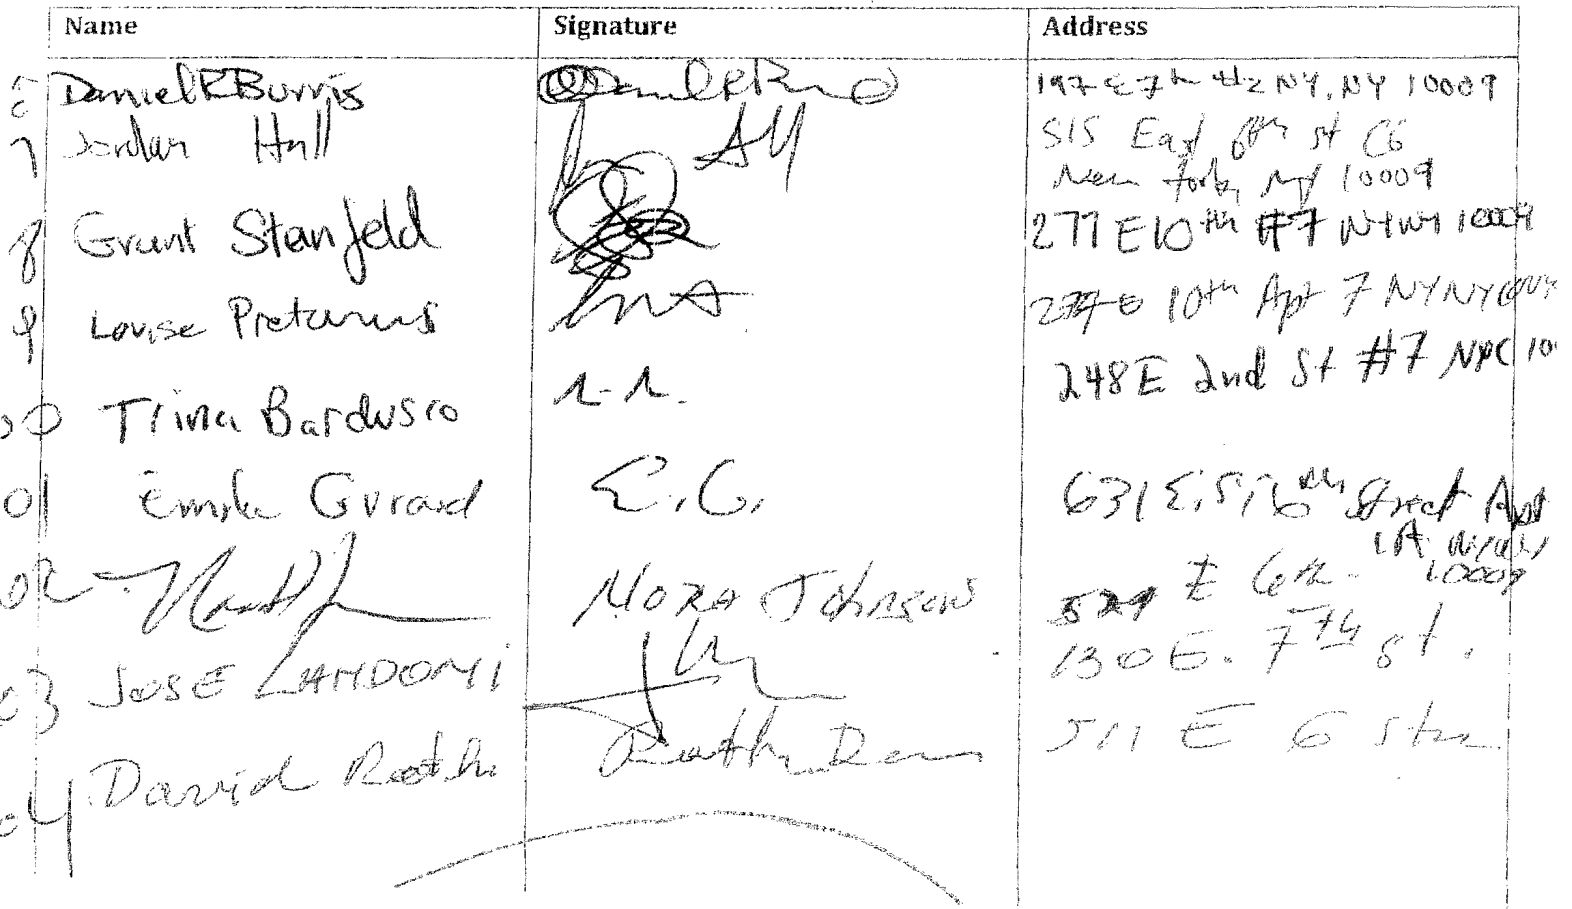 Name Signature Address
Daniel R Burris 197 E 7th #2 NY, NY 10009
7 Jordan Hall 515 East 6th st C6
New York, NY 10009
8 Grant Stanfeld 277 E 10th #7 NY NY 10009
9 Louise 10th Apt 7 NY NY
00 Trina Bardusco 248 E 2nd St #7 NYC 10
01 Emile E.G. 631 E. 6th Street Apt
1A
10009
02 Mora Johnson 529 E 6th.
03 JOSE 130 E. 7th st.
04 David Roth 511 E 6 St